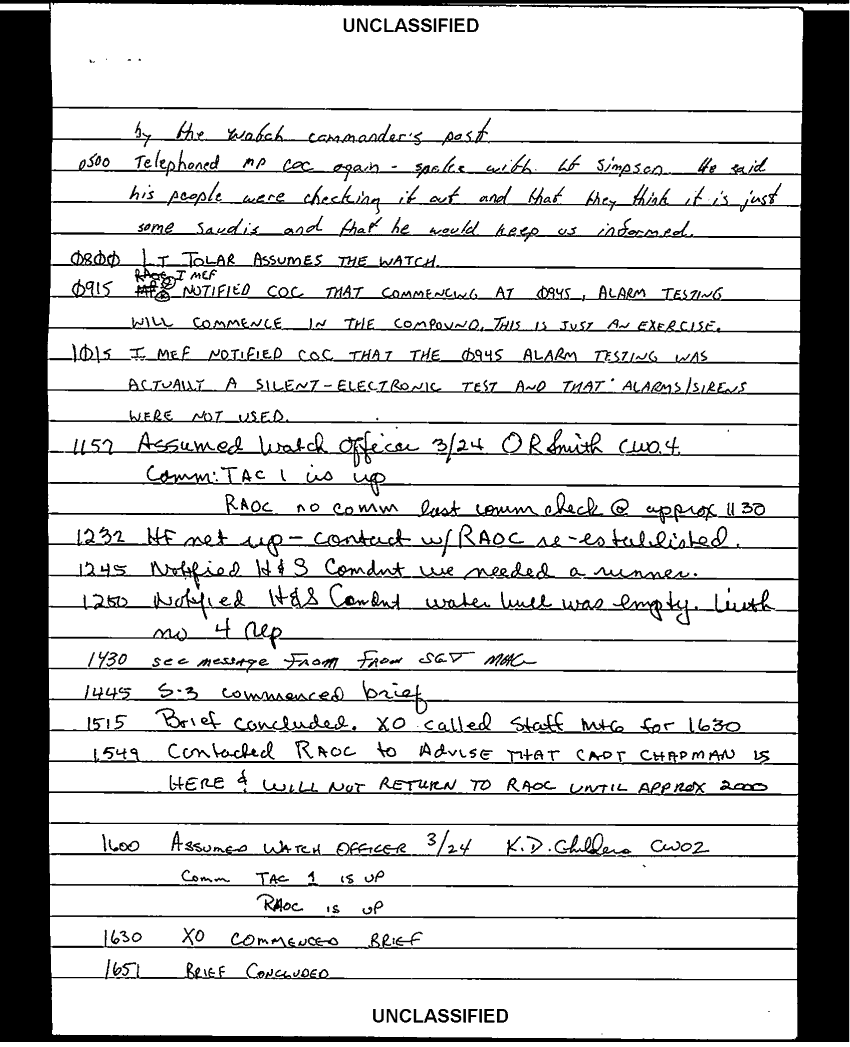 UNCLASSIFIED
by the watch commander's post.
0500 Telephoned MP COC again - spoke with Lt Simpson. He said
his people were checking it out and that they think it is just
some Saudis and that he would keep us informed.
0800 LT TOLAR ASSUMES THE WATCH.
RAOC I MEF
0915 NOTIFIED COC THAT COMMENCING AT 0945, ALARM TESTING
WILL COMMENCE IN THE COMPOUND. THIS IS JUST AN EXERCISE.
1015 I MEF NOTIFIED COC THAT THE 0945 ALARM TESTING WAS
ACTUALLY A SILENT-ELECTRONIC TEST AND THAT ALARMS/SIRENS
WERE NOT USED.
1157 Assumed Watch Officer 3/24 O R Smith CWO.4.
Comm: TAC 1 is up
RAOC no comm last comm check @ approx 1130
1232 HF net up - contact w/ RAOC re-established.
1245 Notified H&S Comdnt we needed a runner.
1250 Notified H&S Comdnt water bull was empty.
no 4 rep
1430 see message From From SGT
1445 S-3 commenced brief
1515 Brief concluded. XO called Staff Mtg for 1630
1549 Contacted RAOC to ADVISE THAT CAPT CHAPMAN IS
HERE & WILL NOT RETURN TO RAOC UNTIL APPROX 2000
1600 ASSUMED WATCH OFFICER 3/24 K.D. Childers CWO2
Comm TAC 1 IS UP
RAOC IS UP
1630 XO COMMENCED BRIEF
1651 BRIEF CONCLUDED
UNCLASSIFIED